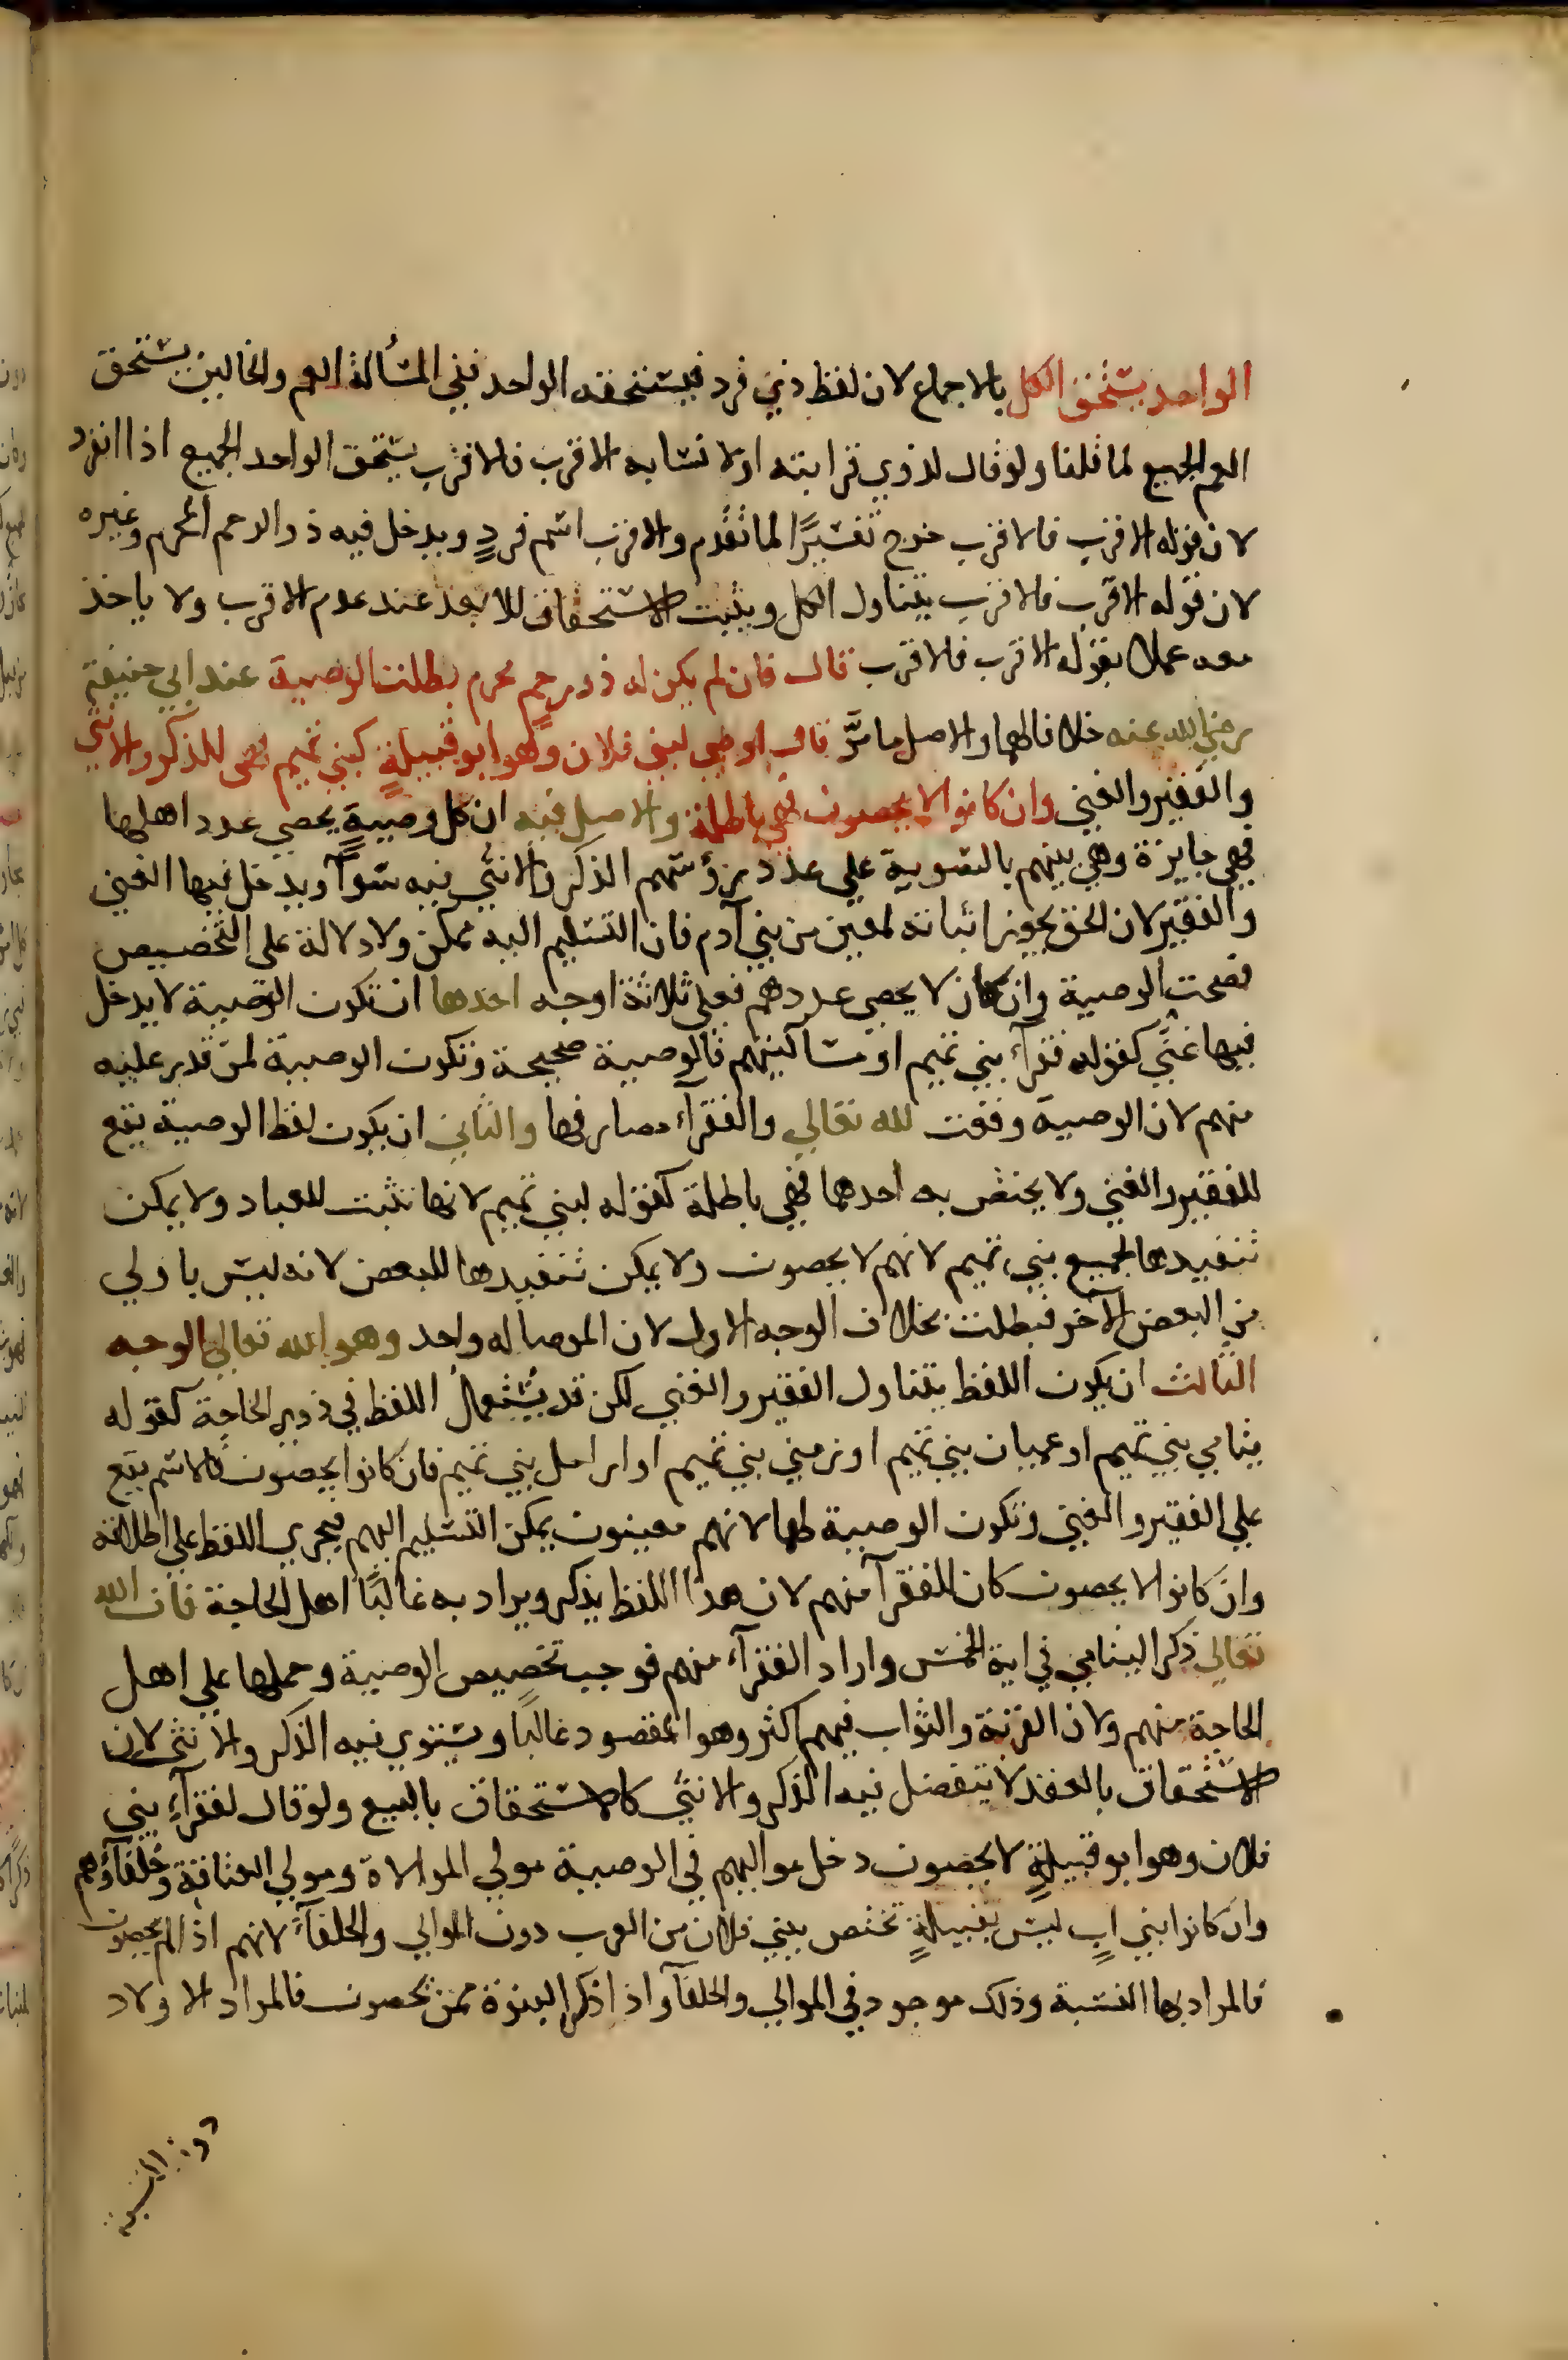 الواحد يستحق الكل بالاجماع لان لفظ ذي فرد فيستحقه الواحد ففي المسألة العم والخالين يستحق
العم الجميع لما قلنا ولو قال لذوي قرابته او لانسابه الاقرب فالاقرب يستحق الواحد الجميع اذا انفرد
لان قوله الاقرب فالاقرب خرج تفسيرًا لما تقدم والاقرب اسم فردٍ ويدخل فيه ذو الرحم المحرم وغيره
لان قوله الاقرب فالاقرب يتناول الكل ويثبت الاستحقاق للابعد عند عدم الاقرب ولا ياخذ
معه عملا بقوله الاقرب فالاقرب قال فان لم يكن له ذو رحمٍ محرم بطلت الوصية عند ابي حنيفة
رضي الله عنه خلافا لهما والاصل ما مرَّ قال اوصي لبني فلان وهو ابو قبيلةٍ كبني تميم فهي للذكر والانثي
والفقير والغني وان كانوا لا يحصون فهي باطلة والاصل فيه ان كل وصيةٍ يحصي عدد اهلها
فهي جايزة وهي بينهم بالسوية علي عدد رؤسهم الذكر والانثي فيه سوآ ويدخل فيها الغني
والفقير لان الحق يجوز اثباته لمعين من بني آدم فان التسليم اليه ممكن ولا دلالة علي التخصيص
فصحت الوصية وان كان لا يحصي عددهم فعلي ثلاثة اوجه احدها ان تكون الوصية لا يدخل
فيها غني كقوله فقرآء بني تميم او مساكينهم فالوصية صحيحة وتكون الوصية لمن قدر عليه
منهم لان الوصية وقعت لله تعالي والفقرآء مصارفها والثاني ان يكون لفظ الوصية يقع
للفقير والغني ولا يختص به احدهما فهي باطلة كقوله لبني تميم لانها تثبت للعباد ولا يمكن
تنفيذها لجميع بني تميم لانهم لا يحصون ولا يمكن تنفيذها للبعض لانه ليس باولي
من البعض الآخر فبطلت بخلاف الوجه الاول لان الموصا له واحد وهو الله تعالي الوجه
الثالث ان يكون اللفظ يتناول الفقير والغني لكن قد يستعمل اللفظ في ذوي الحاجة كقوله
يتامي بني تميم او عميان بني تميم او زمني بني تميم او ارامل بني تميم فان كانوا يحصون فالاسم يقع
علي الفقير والغني وتكون الوصية لهما لانهم معينون يمكن التسليم اليهم فيجري اللفظ علي اطلاقه
وان كانوا لا يحصون كان للفقرآ منهم لان هذا اللفظ يذكر ويراد به غالبًا اهل الحاجة فان الله
تعالي ذكر اليتامي في اية الخمس واراد الفقرآء منهم فوجب تخصيص الوصية وحملها علي اهل
الحاجة منهم ولان القربة والثواب فيهم اكثر وهو المقصود غالبًا ويستوي فيه الذكر والانثي لان
الاستحقاق بالعقد لا يتفضل فيه الذكر والانثي كالاستحقاق بالبيع ولو قال لفقرآءِ بني
فلان وهو ابو قبيلةٍ لا يحصون دخل مواليهم في الوصية مولي الموالاة ومولي العتاقة وحلفآؤهم
وان كانوا بني ابٍ ليس بقبيلةٍ تختص ببني فلان من العرب دون الموالي والحلفآء لانهم اذا لم يحصون
فالمراد بها النسبة وذلك موجود في الموالي والحلفآ واذا ذكر البنوة ممن يحصون فالمراد الاولاد
دون النسبة